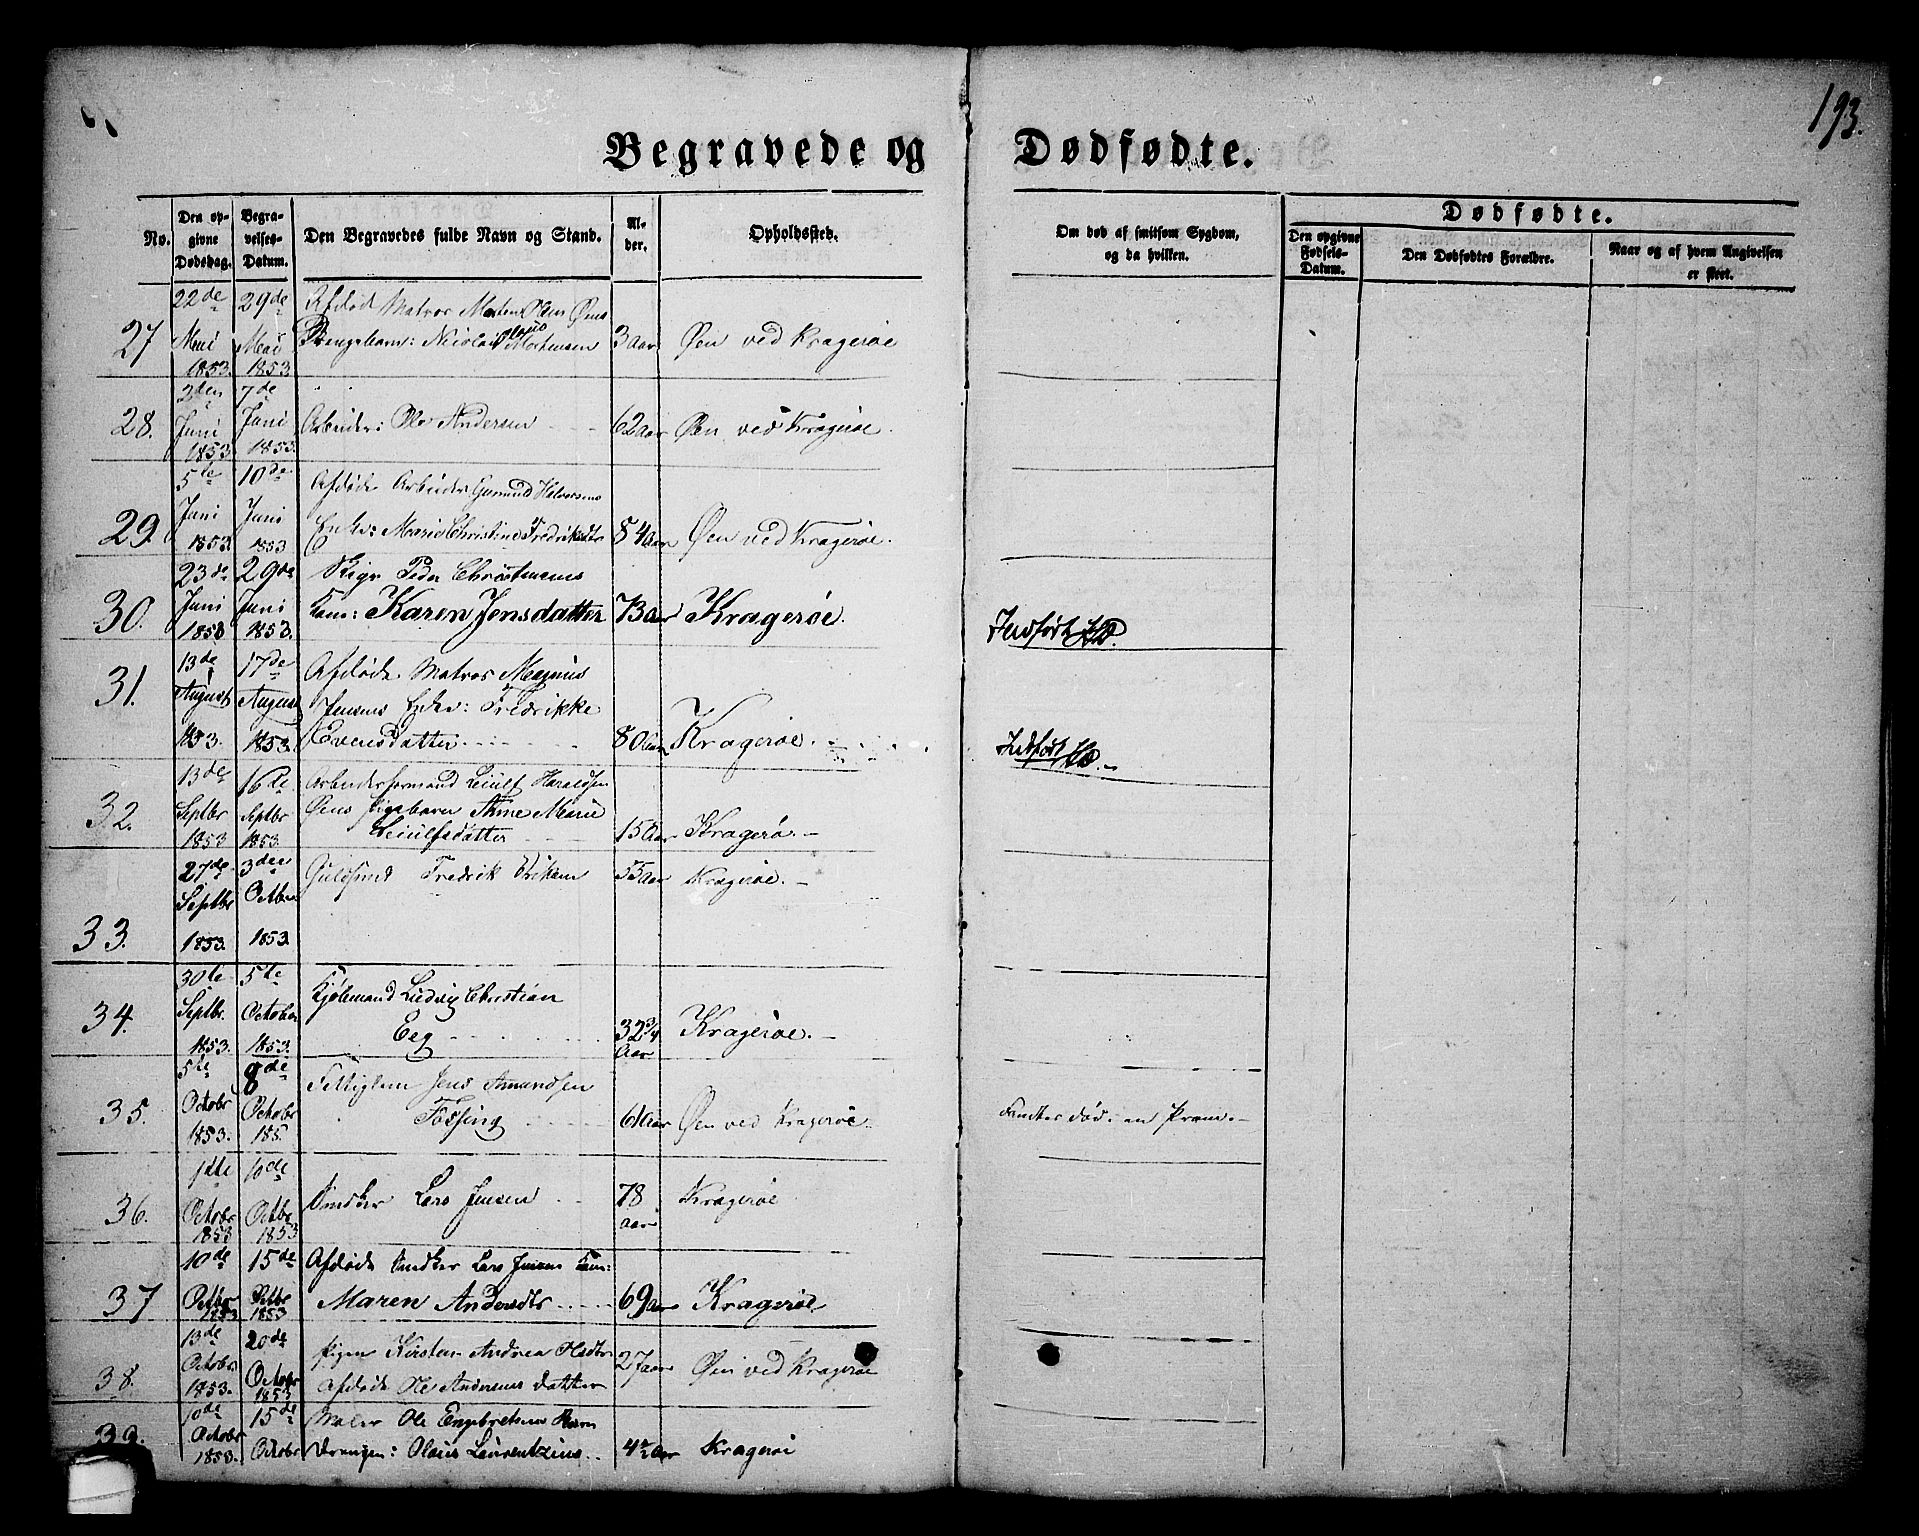 193.
Begravede og Dødfødte.
No.
Den opgivne Dødsdag.
Begravelses-Datum.
Den Begravedes fulde Navn og Stand.
Alder.
Opholdssted.
Om død af smitsom Sygdom, og da hvilken.
Dødfødte.
Den opgivne Fødsels-Datum.
Den Dødfødtes Forældre.
Naar og af hvem Angivelsen er skeet.
27
22de Mai 1853.
29de Mai 1853.
Afdøde Matros Morten Øens
Drengebarn: Nicolai Olaus Mortensen
3 Aar
Øen ved Kragerøe
28.
2den Juni 1853.
7de Juni 1853.
Arbeider: Ole Andersen
62 aar
Øen ved Kragerøe.
29
5te Juni 1853
10de Juni 1853
Afdøde Arbeider Gunmund Halvorsens
Enke: Marie Christine Fredriksdtr
84 Aar
Øen ved Kragerøe.
30.
23de Juni 1853
29de Juni 1853.
Peder Christensens
Kone: Karen Jensdatter
73 aar
Kragerøe.
Indført
31.
13de August 1853.
17de August 1853.
Afdøde Matros Magnus
Jensens Enke: Fredrikke
Evensdatter
80 Aar
Kragerøe.
Indført
32.
13de Septbr 1853
16de Septbr 1853.
Arbeidsformand Leiulf Haraldsen
Øens Pigebarn Anne Marie
Leiulfsdatter
15 Aar
Kragerø.
33.
27de Septbr 1853.
3die Octbr 1853.
Guldsmed Fredrik
55 Aar
Kragerøe.
34.
30te Septbr. 1853.
5te October 1853.
Kjøbmand Ludvig Christian
Eeg
32 3/4 Aar
Kragerøe.
35.
5te Octobr 1853.
8de Octobr 185
Fattiglem Jens Amundsen
Fossing
61 Aar
Øen ved Kragerøe.
Fandtes død i en Pram.
36.
1ste Octobr 1853
10de Octbr 1853
Snedker Lars Jensen
78 aar
Kragerøe
37
10de Octbr 1853
15de Octbr 1853
Afdøde Snedker Lars Jensens Kone:
Maren Andersdtr
69 aar
Kragerøe
38.
13de Octobr 1853.
20de Octobr 1853
Pigen Kirsten Andrea Olsdtr
Afdøde Ole Andersens datter
27 aar
Øen ved Kragerøe
39.
10de Octobr 1853.
15de Octobr
Maler Ole Engebretsens Barn
Drengen: Olaus Laurentzius
4 1/2 Aar
Kragerøe